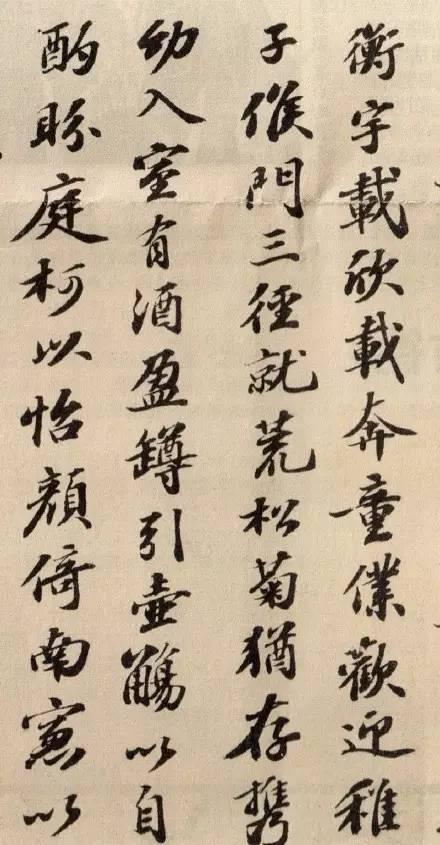 衡宇載欣載奔童僕歡迎稚
子候門三徑就荒松菊猶存攜
幼入室有酒盈罇引壺觴以自
酌眄庭柯以怡顏倚南窗以